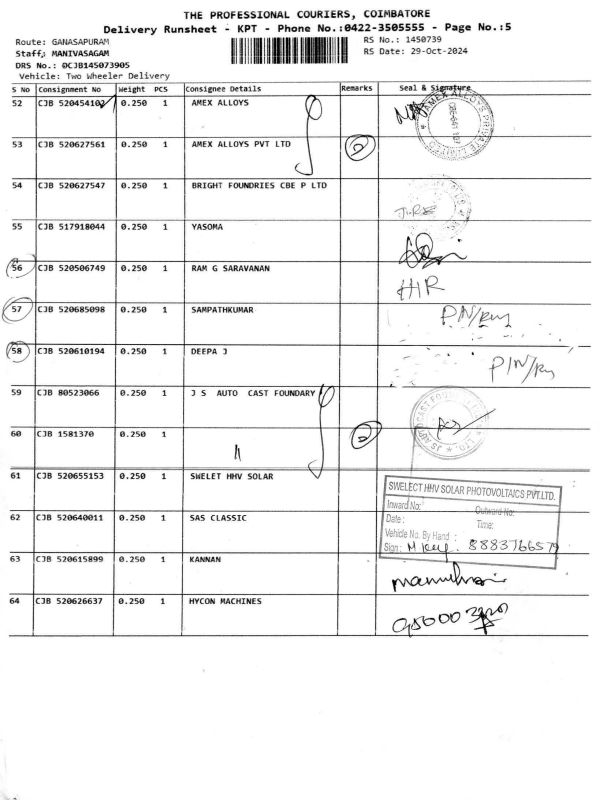 THE PROFESSIONAL COURIERS, COIMBATORE
Delivery Runsheet - KPT - Phone No.:0422-3505555 - Page No.:5
Route: GANASAPURAM RS No.: 1450739
Staff: MANIVASAGAM RS Date: 29-Oct-2024
DRS No.: OCJB145073905
Vehicle: Two Wheeler Delivery
S No Consignment No Weight PCS Consignee Details Remarks Seal & Signature
52 CJB 520454102 0.250 1 AMEX ALLOYS
53 CJB 520627561 0.250 1 AMEX ALLOYS PVT LTD 2
54 CJB 520627547 0.250 1 BRIGHT FOUNDRIES CBE P LTD
55 CJB 517918044 0.250 1 YASOMA
56 CJB 520506749 0.250 1 RAM G SARAVANAN HIR
57 CJB 520685098 0.250 1 SAMPATHKUMAR
58 CJB 520610194 0.250 1 DEEPA J
59 CJB 80523066 0.250 1 J S AUTO CAST FOUNDARY
60 CJB 1581370 0.250 1 " 2
61 CJB 520655153 0.250 1 SWELET HHV SOLAR
SWELECT HHV SOLAR PHOTOVOLTAICS PVT.LTD.
Inward No: Outward No:
62 CJB 520640011 0.250 1 SAS CLASSIC
Date: Time:
Vehicle No. By Hand :
Sign: 8883766579
63 CJB 520615899 0.250 1 KANNAN
64 CJB 520626637 0.250 1 HYCON MACHINES